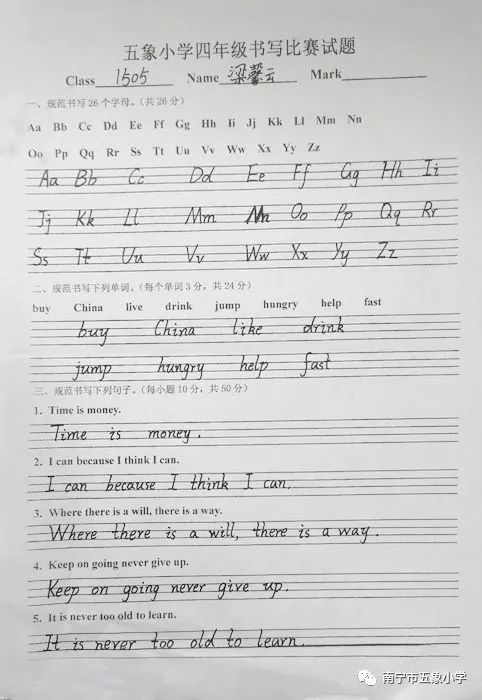 五象小学四年级书写比赛试题
Class 1505 Name 梁馨云 Mark
一、规范书写26个字母。(共26分)
Aa Bb Cc Dd Ee Ff Gg Hh Ii Jj Kk Ll Mm Nn
Oo Pp Qq Rr Ss Tt Uu Vv Ww Xx Yy Zz
Aa Bb Cc Dd Ee Ff Gg Hh Ii
Jj Kk Ll Mm Nn Oo Pp Qq Rr
Ss Tt Uu Vv Ww Xx Yy Zz
二、规范书写下列单词。(每个单词3分,共24分)
buy China live drink jump hungry help fast
buy China like drink
jump hungry help fast
三、规范书写下列句子。(每小题10分,共50分)
1. Time is money.
Time is money.
2. I can because I think I can.
I can because I think I can.
3. Where there is a will, there is a way.
Where there is a will, there is a way.
4. Keep on going never give up.
Keep on going never give up.
5. It is never too old to learn.
It is never too old to learn.
南宁市五象小学